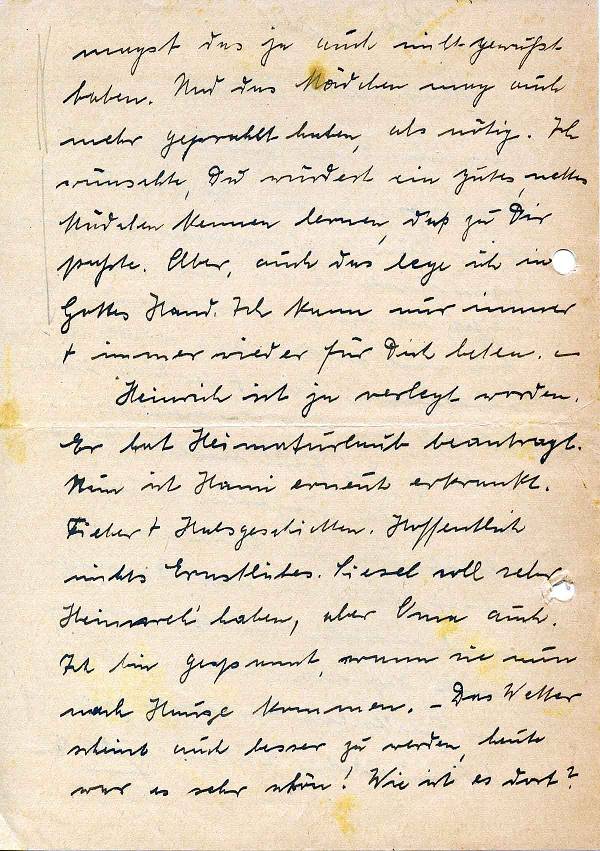 magst das ja auch nicht gewußt
haben. Und das Mädchen mag auch
mehr geprahlt haben, als nötig. Ich
wünschte, Du würdest ein gutes, nettes
Mädchen kennen lernen, daß zu Dir
paßte. Aber, auch das lege ich in
Gottes Hand. Ich kann nur immer
+ immer wieder für Dich beten. –
Heinrich ist ja verlegt worden.
Er hat Heimaturlaub beantragt.
Nun ist Hanni erneut erkrankt.
Fieber + Halsgeschichten. Hoffentlich
nichts Ernstliches. Liesel soll sehr
Heimweh haben, aber Oma auch.
Ich bin gespannt, wann sie nun
nach Hause kommen. – Das Wetter
scheint auch besser zu werden, heute
war es sehr schön! Wie ist es dort?